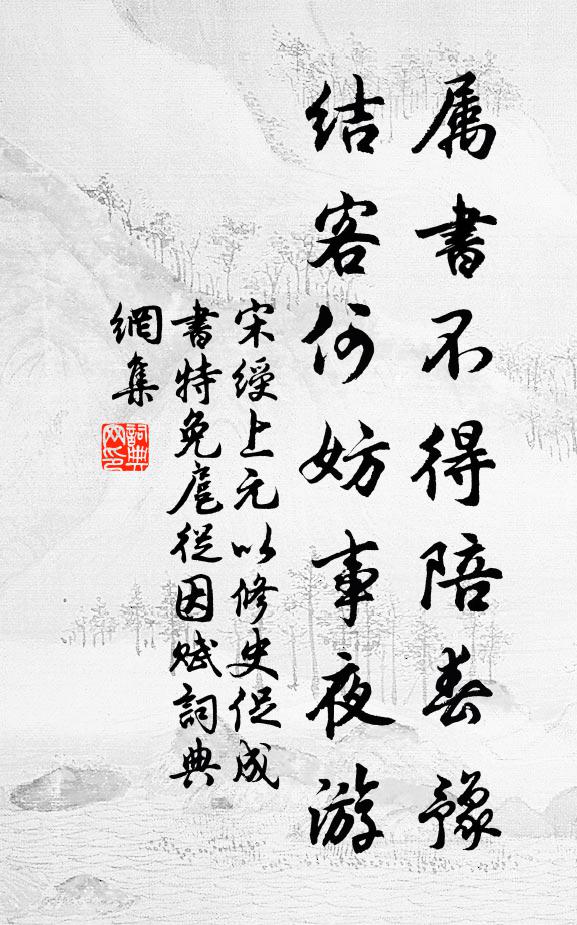 属書不得陪春豫
結客何妨事夜游
宋綬上元以修史促成
書特免扈從因賦詞典
網集
詞典
网印